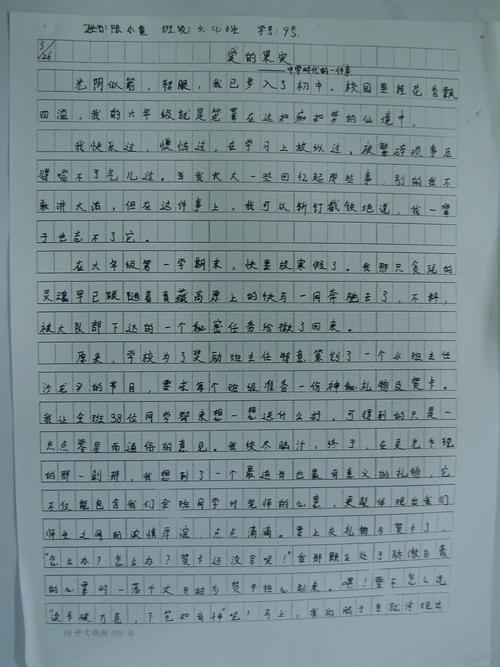 姓名:陈小 班级:六 班 学号:95
3/26
爱的果实
——中学时代的一件事
光阴似箭,转眼,我已步入了初中。校园里桂花香飘
四溢,我的六年级就是笼罩在这如痴如梦的仙境中。
我快乐过,懊悔过,在学习上放纵过,被繁碎琐事压
得喘不了气儿过。当我长大一些回忆起那些事,别的我不
敢讲大话,但在这件事上,我可以斩钉截铁地说,我一辈
子也忘不了它。
在六年级第一学期末,快要放寒假了。我那只贪玩的
灵魂早已跟随着青藏高原上的快马一同奔驰去了,不料,
被大队部下达的一个秘密任务给揪了回来。
原来,学校为了奖励班主任特意策划了一个从班主任
沙龙 的节目,要求每个班级准备一份神秘礼物及贺卡。
我让全班38位同学都来想一想送什么好,可得到的只是一
点点零星而通俗的意见。我绞尽脑汁,终于,在灵光乍现
的那一刹那,我想到了一个最适当也最有意义的礼物,它
不仅能包含我们全班同学对老师的心意,更能体现出我们
师生之间的浓情厚谊,点点滴滴。要上交礼物与贺卡了,
“怎么办?怎么办?贺卡还没写呢!”我那颗正处于骄傲自豪
的心霎时一落千丈开始为贺卡担心起来。嗯!要不怎么说
“读书破万卷,下笔如有神”呢!马上,我的脑子里就浮现出
16开文稿纸500格